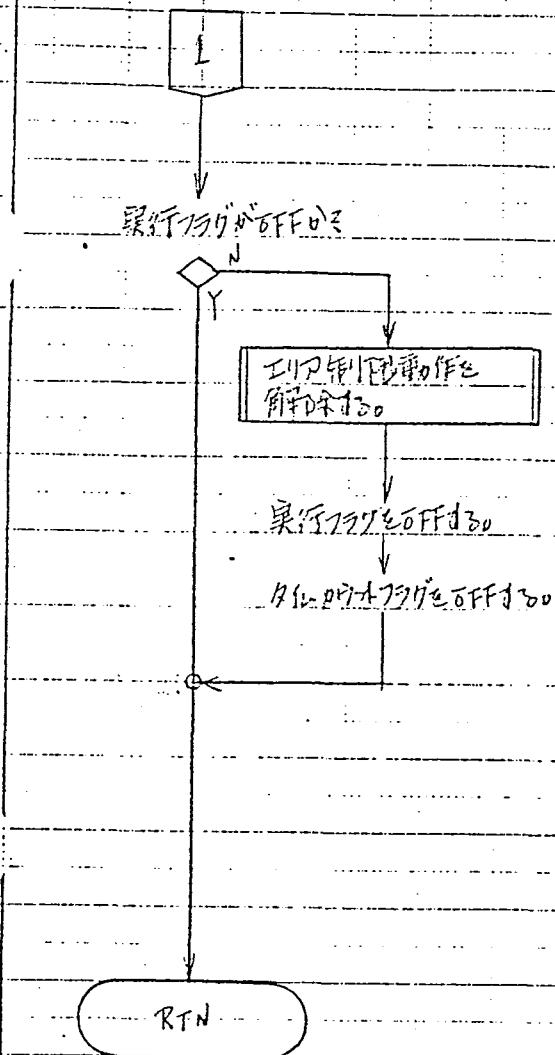 1
実行フラグがOFFか?
N
Y
エリア制限動作を
解除する。
実行フラグをOFFする。
タイムアウトフラグをOFFする。
RTN